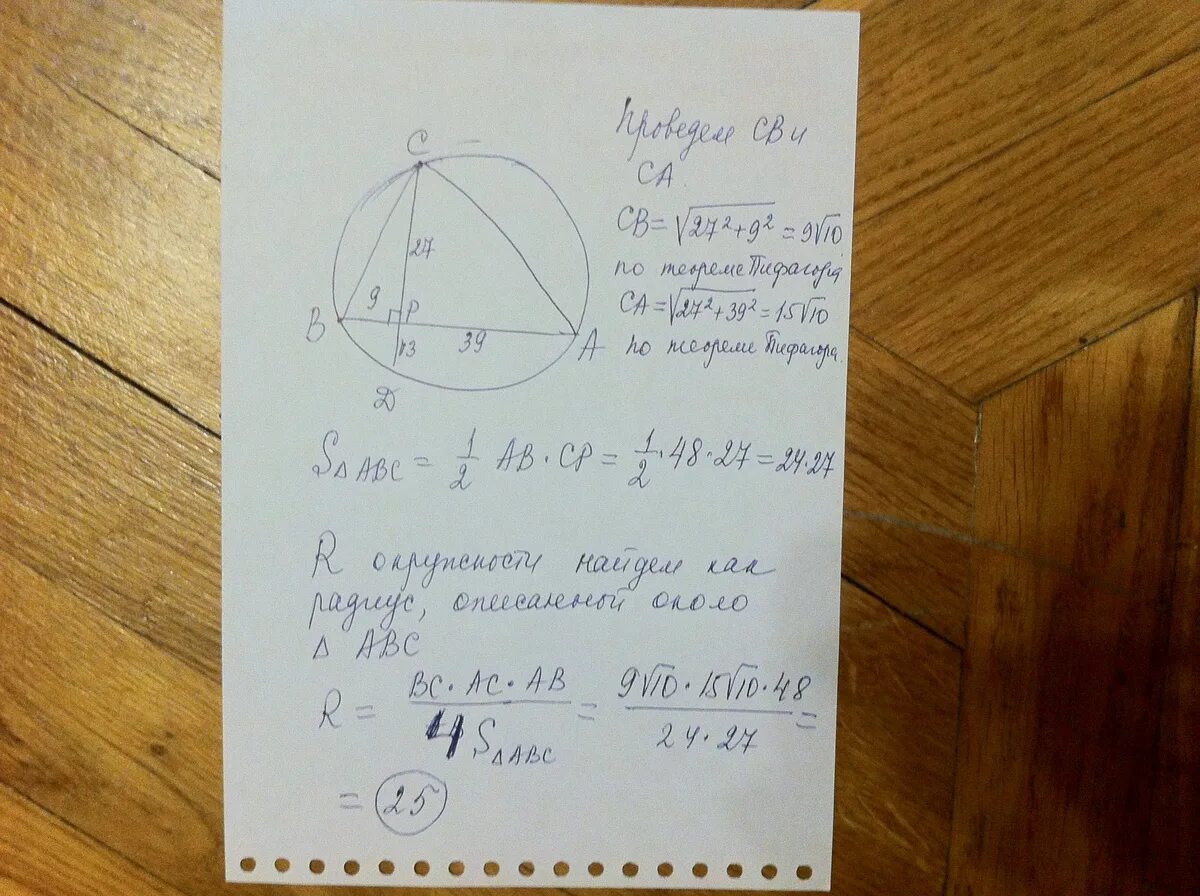 C
27
9
P
B
13
39
A
D
Проведем CB и
CA.
CB = √27² + 9² = 9√10
по теореме Пифагора
CA = √27² + 39² = 15√10
по теореме Пифагора.
S△ABC = 1/2 AB · CP = 1/2 · 48 · 27 = 24 · 27
R окружности найдем как
радиус, описанной около
△ ABC
R = BC · AC · AB / 4 S△ABC = 9√10 · 15√10 · 48 / 24 · 27 =
= 25